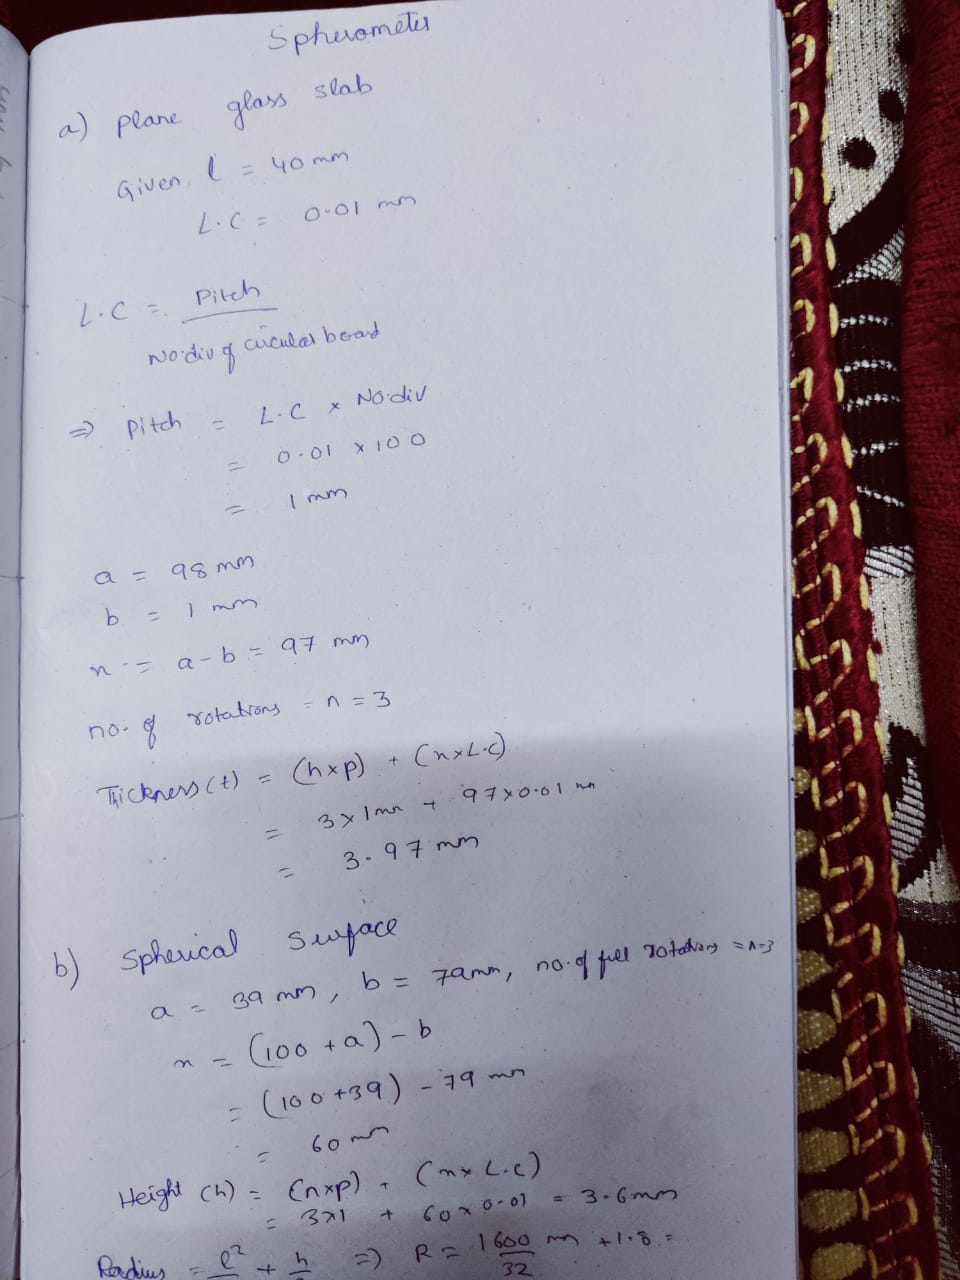 Spherometer
a) plane glass slab
Given, l = 40 mm
L.C = 0.01 mm
L.C = Pitch
No.div of circular board
⇒ Pitch = L.C x No.div
= 0.01 x 100
= 1 mm
a = 98 mm
b = 1 mm
n = a-b = 97 mm
no. of rotations = n = 3
Thickness (t) = (n x p) + (n x L.C)
= 3 x 1mm + 97 x 0.01 mm
= 3.97 mm
b) Spherical Surface
a = 39 mm, b = 79mm, no.of full rotations = n=3
n = (100 + a) - b
= (100 + 39) - 79 mm
= 60 mm
Height (h) = (n x p) + (n x L.C)
= 3x1 + 60 x 0.01 = 3.6mm
Radius = l² + h ⇒ R = 1600 mm + 1.8 =
32